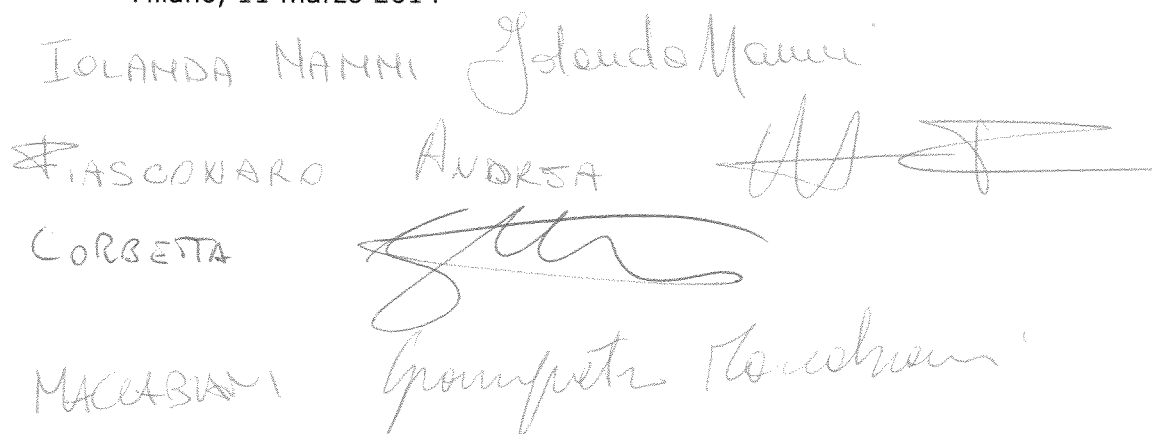 Milano, 11 marzo 2014
IOLANDA NANNI Iolanda Nanni
FIASCONARO ANDREA
CORBETTA
MACCABIANI Giampietro Maccabiani